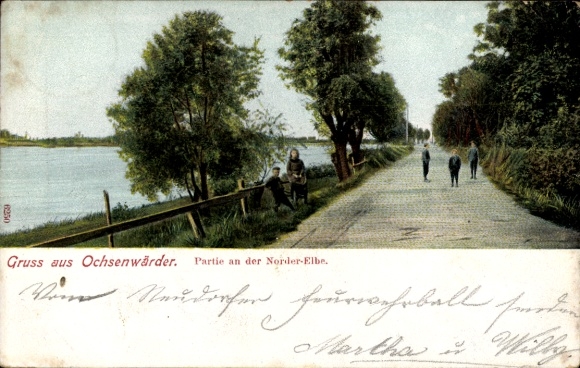 09520
Gruss aus Ochsenwärder. Partie an der Norder-Elbe.
Vom Neudorfer Feuerwehrball senden
Martha u Willy.